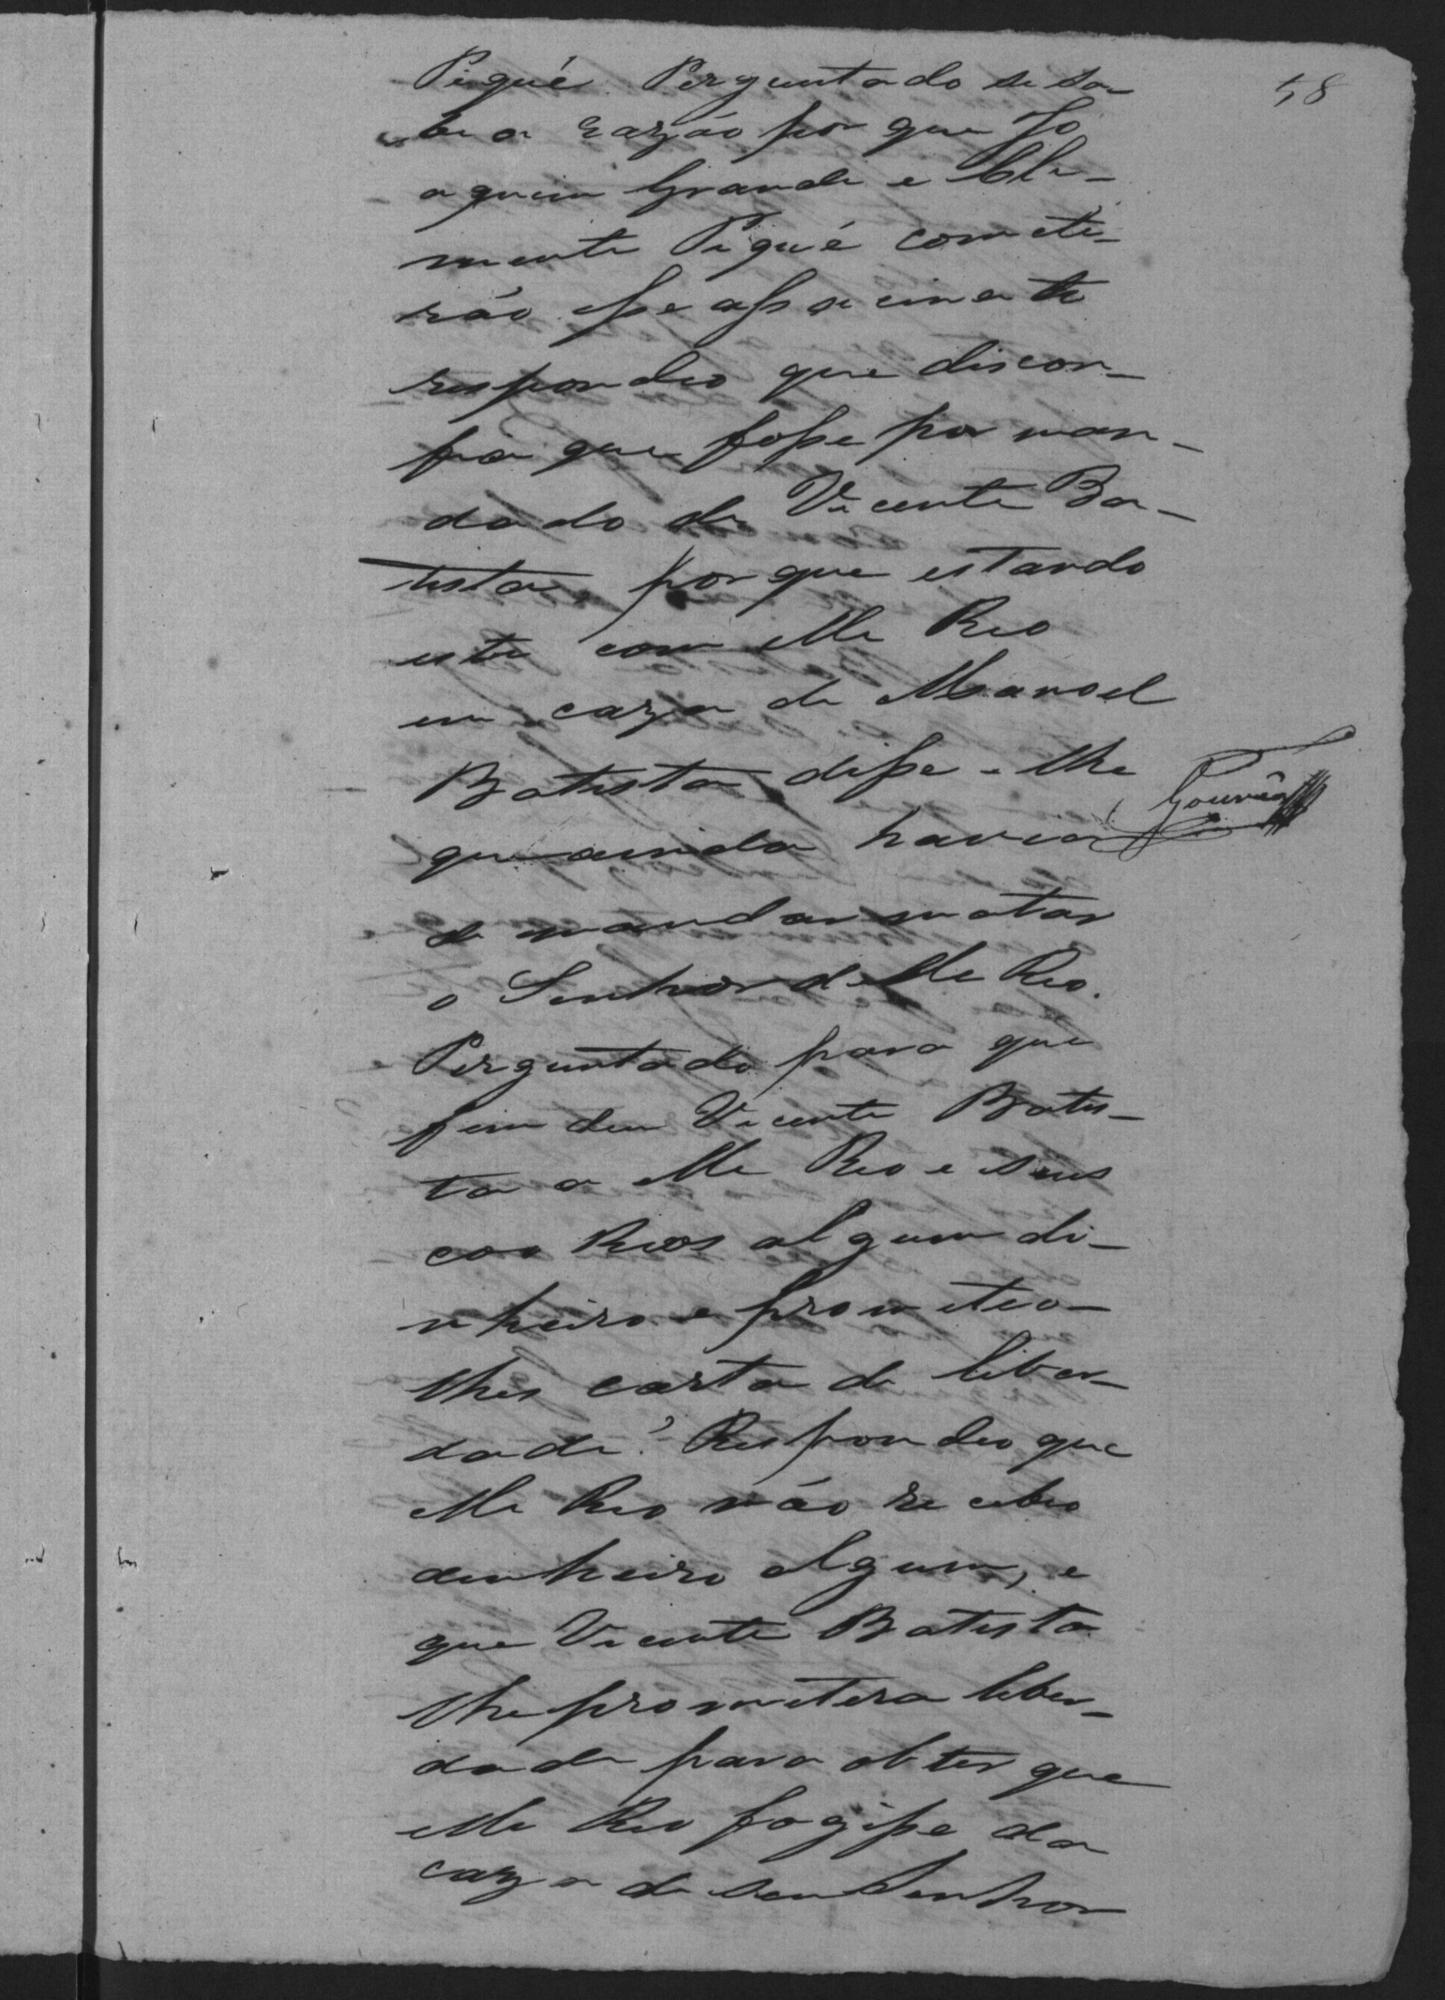 58
Piqué. Perguntado se sa-
be a razão por que Jo
aquim Grande e Cle-
mente Piqué cometi-
rão esse assacinato
respondeo que discon-
fia que fosse por man-
dado de Vicente Ba-
tista, porque estando
este com elle Reo
em caza de Manoel
Batista, disse-lhe
que ainda havia
de mandar matar
o Senhor delle Reo.
Perguntado para que
fim deu Vicente Batis-
ta a elle Reo e seus
coo Reos algum di-
nheiro e prometeo-
lhes carta de liber-
dade? Respondeo que
elle Reo não recebeo
dinheiro algum, e
que Vicente Batista
lhe prometera liber-
dade para obter que
elle Reo fogisse da
caza de seu Senhor
Gouvêa